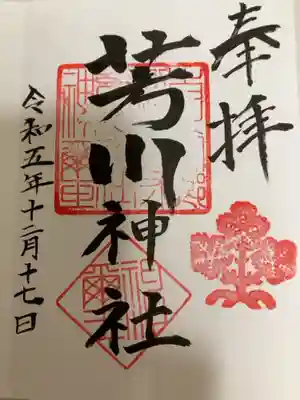 奉拝
芳川神社
令和五年十二月十七日